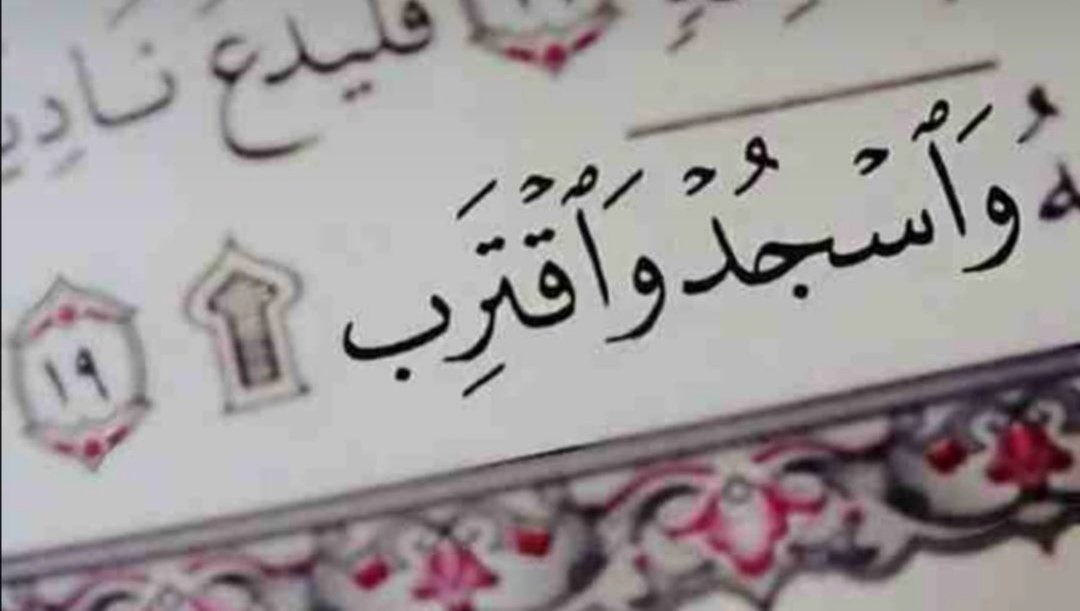 فَلْيَدْعُ نَادِيَ
وَٱسْجُدْ وَٱقْتَرِب ۩ ١٩